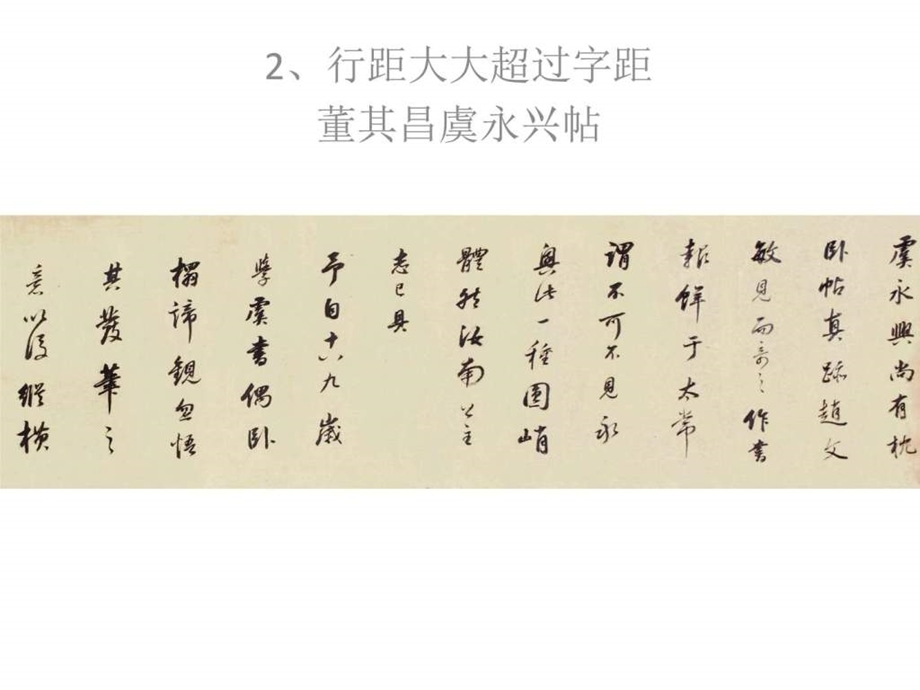 2、行距大大超过字距
董其昌虞永兴帖
虞永興尚有枕
卧帖真跡趙文
敏見而奇之作書
報鮮于太常
謂不可不見永
興此一種圓峭
體終汝南公主
志已具
予自十六九歲
學虞書偶卧
榻諦觀忽悟
其發華之
意以後縱橫